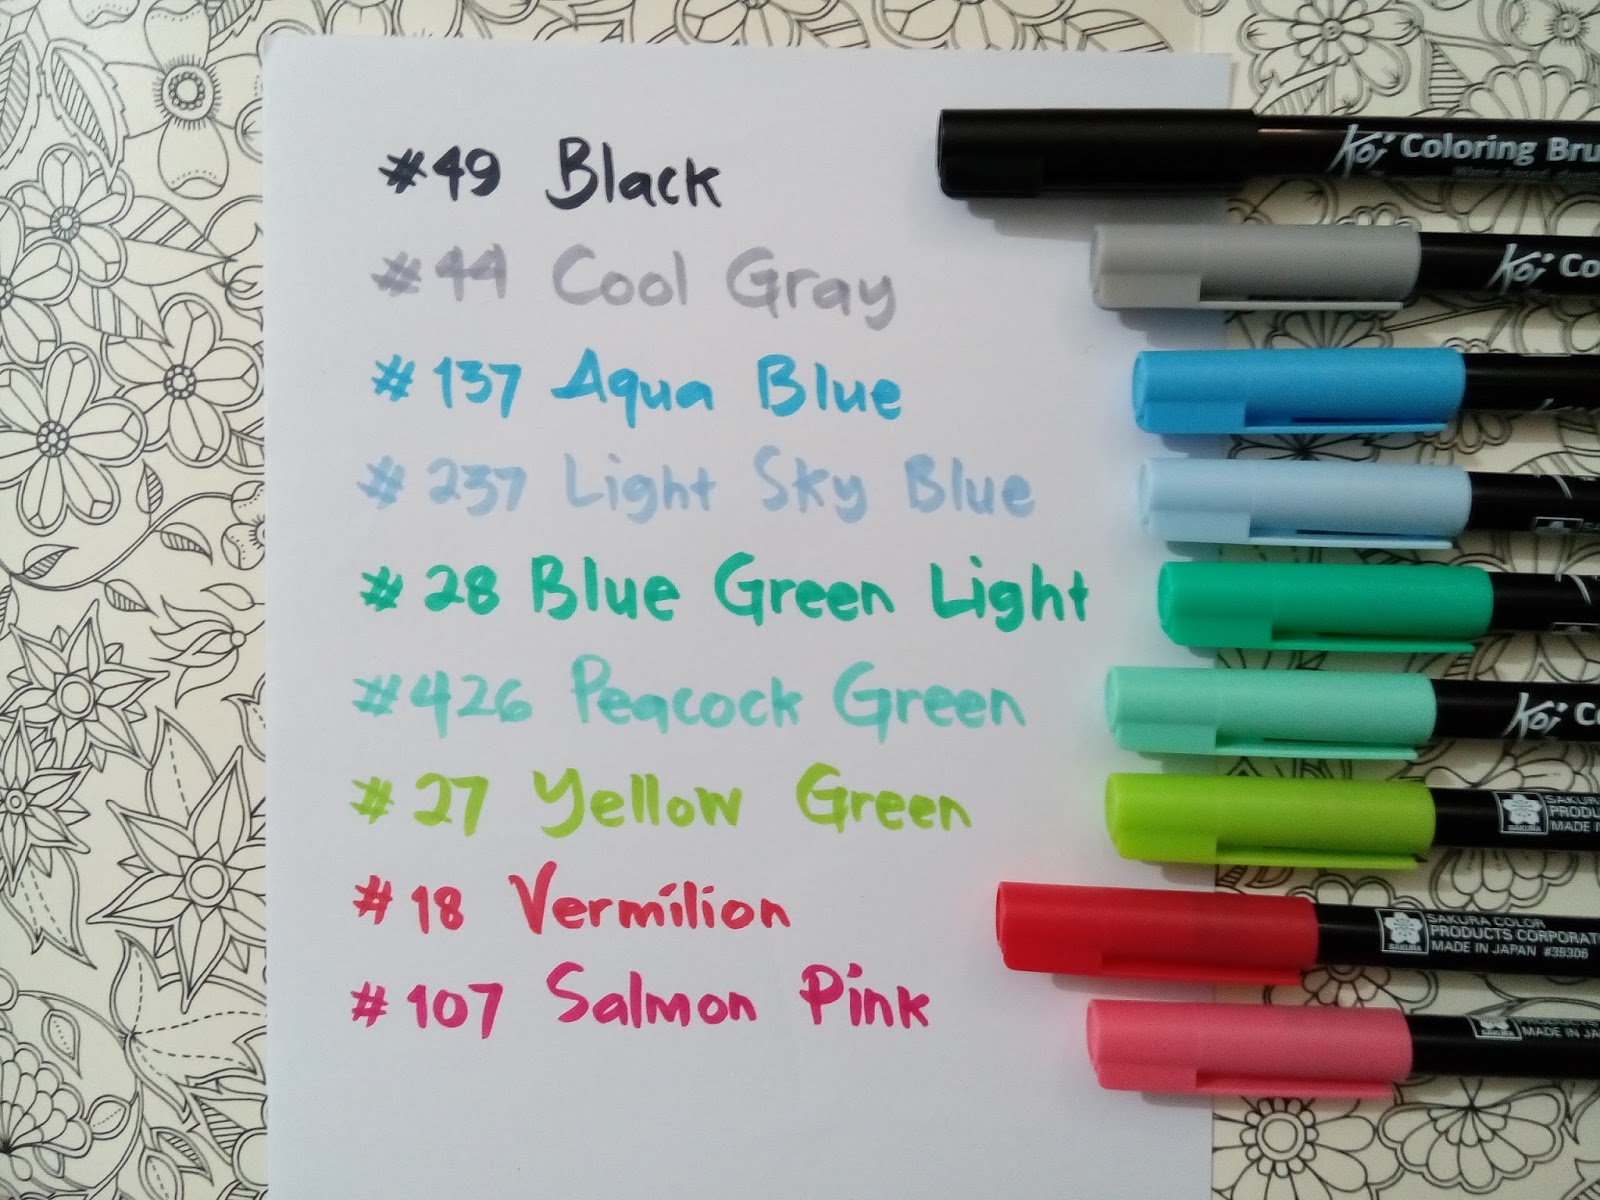 #49 Black
Koi Coloring Bru
#44 Cool Gray
Koi Co
#137 Aqua Blue
#237 Light Sky Blue
#28 Blue Green Light
#426 Peacock Green
Koi Co
#27 Yellow Green
SAKURA
SAKURA
PRODU
MADE I
#18 Vermilion
SAKURA
SAKURA COLOR
PRODUCTS CORPORAT
MADE IN JAPAN #39306
#107 Salmon Pink
PRODUCTS
MADE IN JA